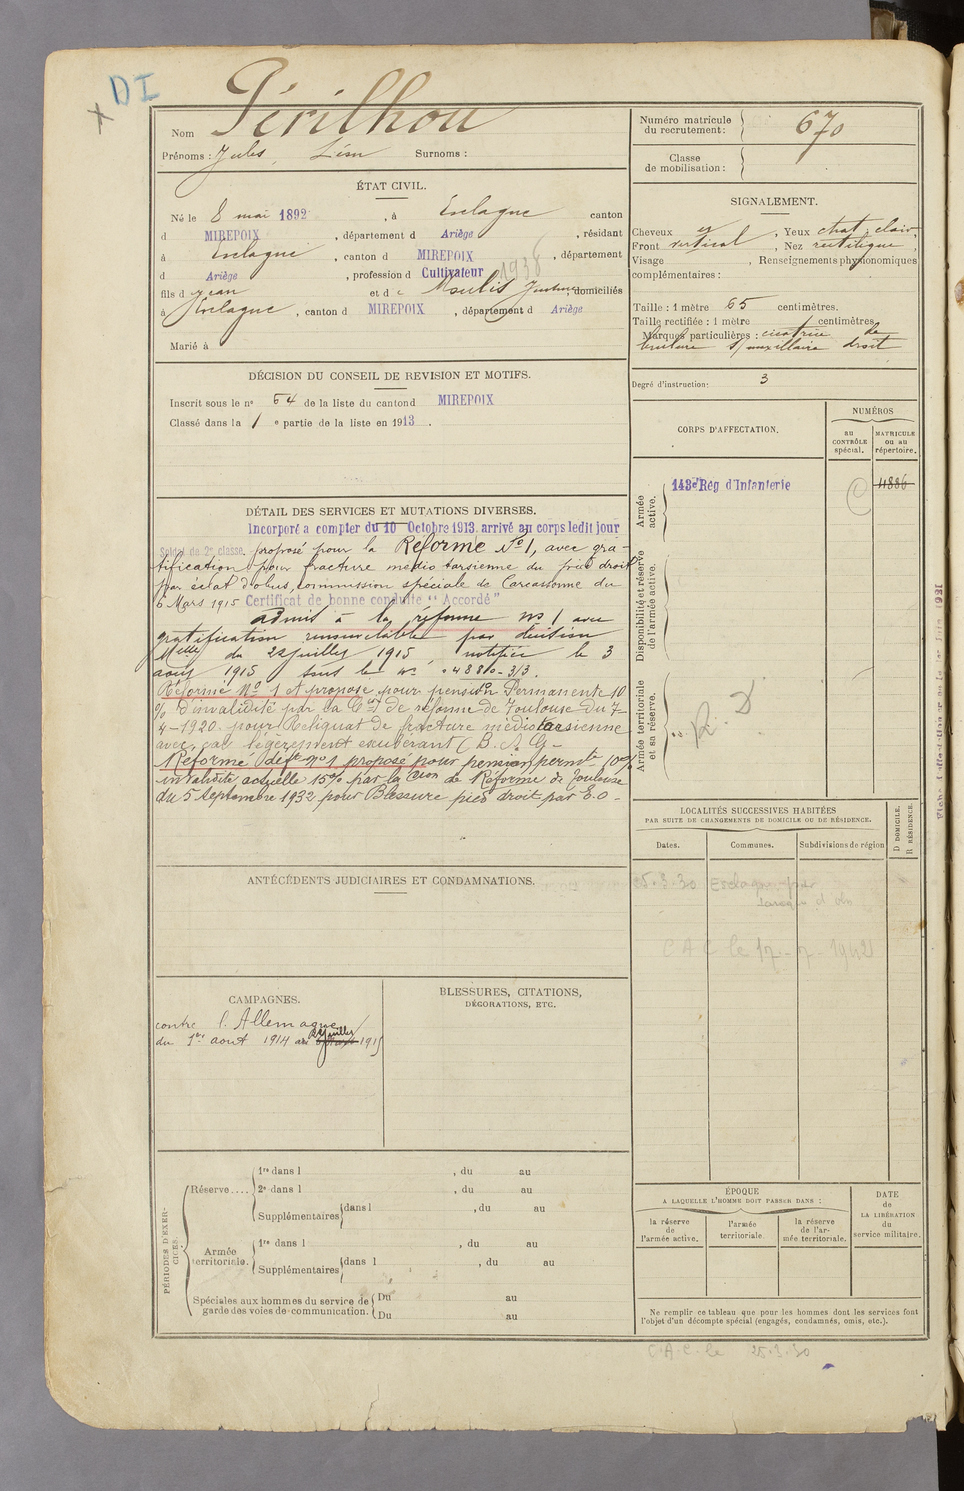 DI
Nom Périlhou
Prénoms : Jules, Léon Surnoms :
Numéro matricule du recrutement : 670
Classe de mobilisation :
ÉTAT CIVIL.
Né le 8 mai 1892, à Esclagne canton
d MIREPOIX, département d Ariège, résidant
à Esclagne, canton d MIREPOIX, département
d Ariège, profession d Cultivateur
1938
fils d Jean et d e Moulis Justine, domiciliés
à Esclagne, canton d MIREPOIX, département d Ariège
Marié à
SIGNALEMENT.
Cheveux, Yeux chat. clair,
Front vertical, Nez rectiligne,
Visage, Renseignements physionomiques
complémentaires :
Taille : 1 mètre 65 centimètres.
Taille rectifiée : 1 mètre centimètres
Marques particulières : cicatrice de
brulure s/ maxillaire droit
Degré d'instruction : 3
DÉCISION DU CONSEIL DE REVISION ET MOTIFS.
Inscrit sous le nº 64 de la liste du canton d MIREPOIX
Classé dans la 1 e partie de la liste en 1913.
CORPS D'AFFECTATION.
NUMÉROS
au CONTRÔLE spécial.
MATRICULE ou au répertoire.
Armée active.
143e Rég d'Infanterie
11886
Disponibilité et réserve de l'armée active.
Armée territoriale et sa réserve.
R. D
DÉTAIL DES SERVICES ET MUTATIONS DIVERSES.
Incorporé a compter du 10 Octobre 1913. arrivé au corps ledit jour
Soldat de 2e classe. proposé pour la Réforme Nº 1, avec gra-
tification pour fracture medio tarsienne du pied droit
par éclat d'obus, commission spéciale de Carcassonne du
6 Mars 1915 Certificat de bonne conduite "Accordé"
admis à la réforme nº 1 avec
gratification renouvelable par décision
Melle du 22 juillet 1915 notifiée le 3
août 1915 sous le nº 4880-3/3.
Réformé Nº 1 et proposé pour pension Permanente 10
% d'invalidité par la Con de réforme de Toulouse du 7-
4-1920. pour Reliquat de fracture médiotarsienne
avec cal légèrement exubérant (B. A. G-
Réformé déft nº 1 proposé pour pension permte 10%
invalidité actuelle 15% par la Cion de Réforme de Toulouse
du 5 Septembre 1932 pour Blessure pied droit par E.O-
LOCALITÉS SUCCESSIVES HABITÉES
PAR SUITE DE CHANGEMENTS DE DOMICILE OU DE RÉSIDENCE.
Dates.
Communes.
Subdivisions de région
D DOMICILE.
R RÉSIDENCE.
25.3.30 Esclagne par
CAC le 17-7-1942
ANTÉCÉDENTS JUDICIAIRES ET CONDAMNATIONS.
CAMPAGNES.
contre l'Allemagne
du 1er aout 1914 au 22 juillet 1915
BLESSURES, CITATIONS,
DÉCORATIONS, ETC.
PÉRIODES D'EXERCICES.
Réserve....
1re dans l, du au
2e dans l, du au
Supplémentaires dans l, du au
Armée territoriale.
1re dans l, du au
Supplémentaires dans l, du au
Spéciales aux hommes du service de
garde des voies de communication.
Du au
Du au
ÉPOQUE
A LAQUELLE L'HOMME DOIT PASSER DANS :
la réserve de l'armée active.
l'armée territoriale.
la réserve de l'armée territoriale.
DATE
de
LA LIBÉRATION
du
service militaire.
Ne remplir ce tableau que pour les hommes dont les services font
l'objet d'un décompte spécial (engagés, condamnés, omis, etc.).
C.A.C. le 25.3.30